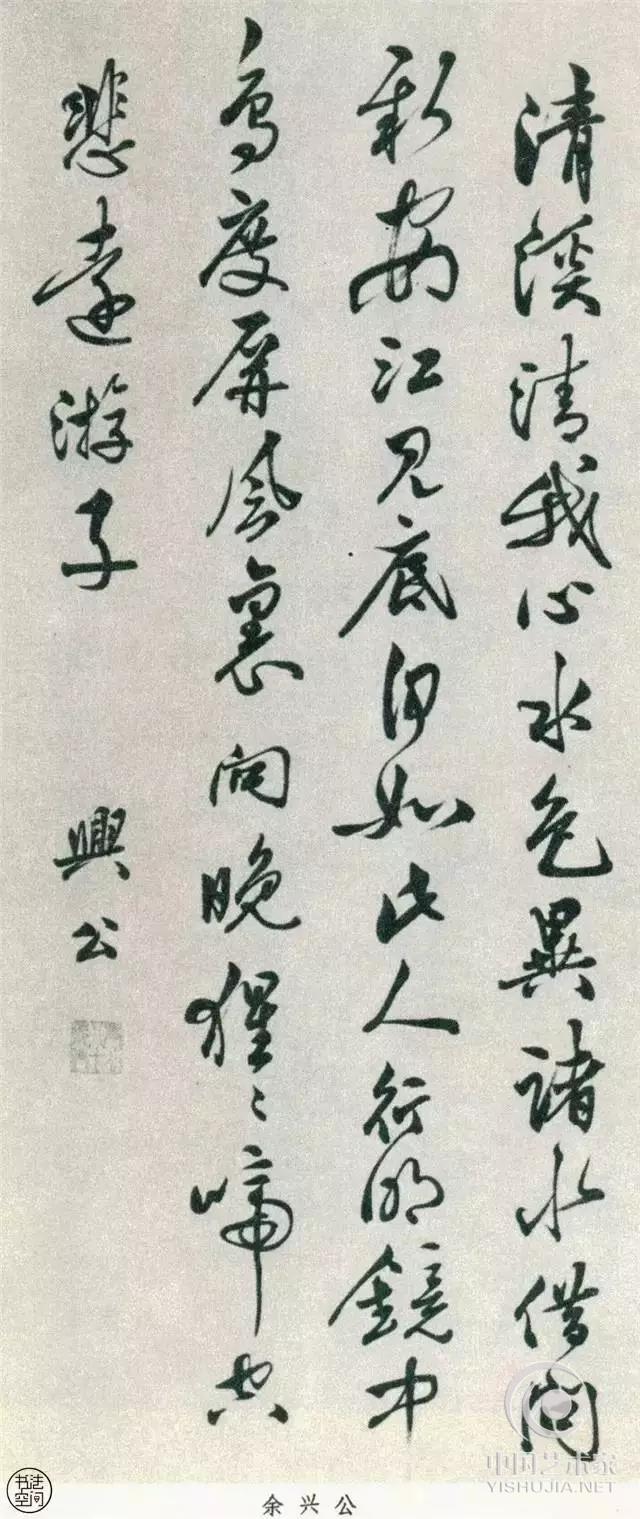 清溪清我心水色異諸水借問
新安江見底何如此人行明鏡中
鳥度屏風裏向晚猩〻啼空
悲遠游子
興公
中国艺术家
YISHUJIA.NET
书法空间
余兴公